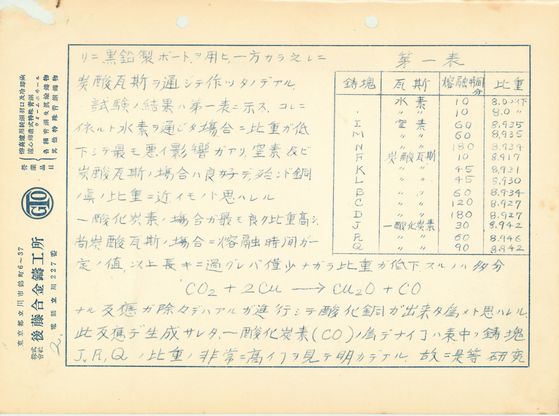 リニ黒鉛製ボートヲ用ヒ一方カラ之レニ
炭酸瓦斯ヲ通シテ作ツタノデアル
試験ノ結果ハ第一表ニ示ス、コレニ
依ルト水素ヲ通ジタ場合ニ比重ガ低
下シテ最モ悪イ影響ガアリ、窒素及ビ
炭酸瓦斯ノ場合ハ良好デ殆ンド銅
ノ真ノ比重ニ近イモノト思ハレル
一酸化炭素ノ場合ガ最モ良ク比重高シ、
尚炭酸瓦斯ノ場合ニ熔融時間ガ一
定ノ値以上長キニ過グレバ僅少ナガラ比重ガ低下スルノハ多分
CO₂ + 2Cu ⟶ Cu₂O + CO
ナル反應ガ除々デハアルガ進行シテ酸化銅ガ出来タ為メト思ハレル、
此反應デ生成サレタ、一酸化炭素(CO)ノ為デナイ了ハ表中ノ鋳塊
J、P、Q ノ比重ノ非常ニ高イ了ヲ見テ明カデアル、故ニ是等研究
第一表
鋳塊 瓦斯 熔融時間分 比重
水素 10 8.0以下
〃 10 8.0〃
I 窒素 60 8.935
M 〃 60 8.935
N 〃 180 8.934
F 炭酸瓦斯 10 8.917
K 〃 45 8.931
A 〃 45 8.930
B 〃 60 8.934
C 〃 120 8.927
D 〃 180 8.927
J 一酸化炭素 30 8.942
P 〃 60 8.946
Q 〃 90 8.942
營業品目
各種青銅及黄銅鑄物
其他特殊青銅鑄物
GIO
東京都立川市錦町6~37
株式会社 後藤合金鑄工所
電話立川227番
2,